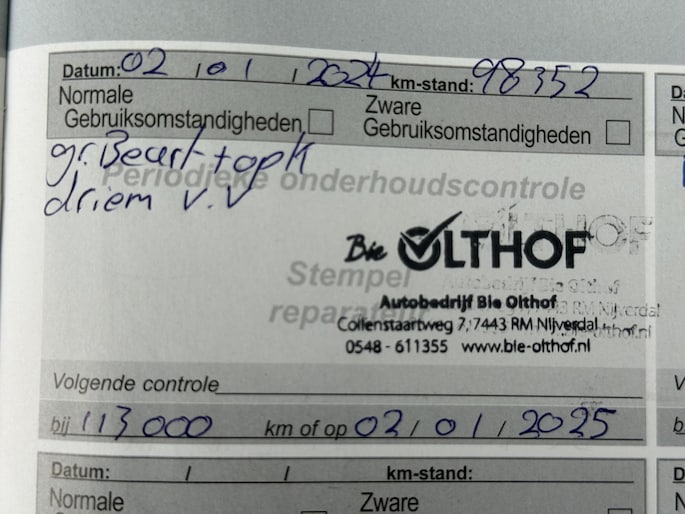 Datum: 02 / 01 / 2024 km-stand: 98352
Normale Gebruiksomstandigheden
Zware Gebruiksomstandigheden
gr. Beurt + apk
driem v.v
Periodieke onderhoudscontrole
Bie OLTHOF
Stempel
reparateur
Autobedrijf Bie Olthof
Collenstaartweg 7, 7443 RM Nijverdal
0548 - 611355 www.bie-olthof.nl
Volgende controle
bij 113000 km of op 02 / 01 / 2025
Datum: / / km-stand:
Normale
Zware